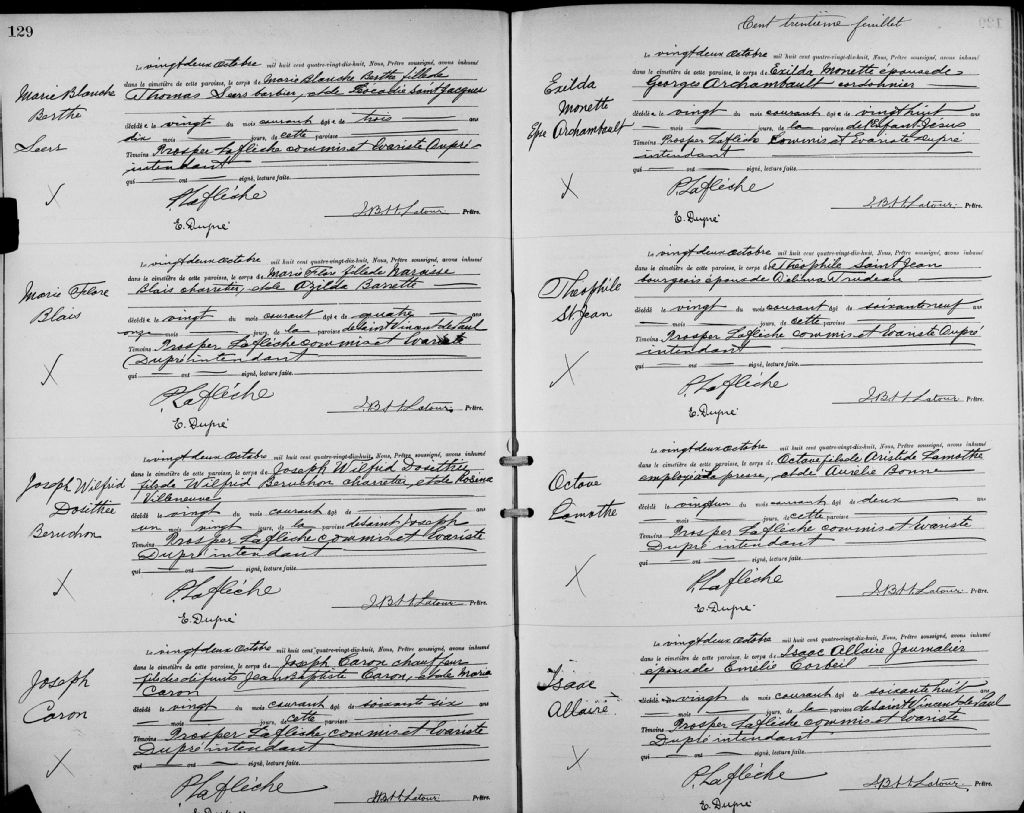 129
Marie Blanche
Berthe
Seers
Le vingt deux octobre mil huit cent quatre-vingt-dix-huit, Nous, Prêtre soussigné, avons inhumé
dans le cimetière de cette paroisse, le corps de Marie Blanche Berthe fille de
Thomas Seers barbier, et de Rosalie Saint Jacques
décédée le vingt du mois courant âgée de trois ans
dix mois jours, de cette paroisse
Témoins Prosper Laflèche commis et Evariste Dupré
intendant
qui ont signé, lecture faite.
P. Laflèche
J.B.H. Latour Prêtre.
E. Dupré
Marie Flore
Blais
Le vingt deux octobre mil huit cent quatre-vingt-dix-huit, Nous, Prêtre soussigné, avons inhumé
dans le cimetière de cette paroisse, le corps de Marie Flore fille de Narcisse
Blais charretier, et de Ozilda Barrette
décédée le vingt du mois courant âgée de quatre ans
onze mois jours, de la paroisse de Saint Vincent de Paul
Témoins Prosper Laflèche commis et Evariste
Dupré intendant
qui ont signé, lecture faite.
P. Laflèche
J.B.H. Latour Prêtre.
E. Dupré
Joseph Wilfrid
Dosithée
Beruchon
Le vingt deux octobre mil huit cent quatre-vingt-dix-huit, Nous, Prêtre soussigné, avons inhumé
dans le cimetière de cette paroisse, le corps de Joseph Wilfrid Dosithée
fils de Wilfrid Beruchon charretier, et de Rosina
Villeneuve
décédé le vingt du mois courant âgé de ans
un mois vingt jours, de la paroisse de Saint Joseph
Témoins Prosper Laflèche commis et Evariste
Dupré intendant
qui ont signé, lecture faite.
P. Laflèche
J.B.H. Latour Prêtre.
E. Dupré
Joseph
Caron
Le vingt deux octobre mil huit cent quatre-vingt-dix-huit, Nous, Prêtre soussigné, avons inhumé
dans le cimetière de cette paroisse, le corps de Joseph Caron chauffeur
fils des défunts Jean Baptiste Caron, et de Maria
Caron
décédé le vingt du mois courant âgé de soixante six ans
mois jours, de cette paroisse
Témoins Prosper Laflèche commis et Evariste
Dupré intendant
qui ont signé, lecture faite.
P. Laflèche
J.B.H. Latour Prêtre.
E. Dupré
Cent trentième feuillet
Exilda
Monette
Epse Archambault
Le vingt deux octobre mil huit cent quatre-vingt-dix-huit, Nous, Prêtre soussigné, avons inhumé
dans le cimetière de cette paroisse, le corps de Exilda Monette épouse de
Georges Archambault cordonnier
décédée le vingt du mois courant âgée de vingt huit ans
mois jours, de la paroisse de l'Enfant Jésus
Témoins Prosper Laflèche commis et Evariste Dupré
intendant
qui ont signé, lecture faite.
P. Laflèche
J.B.H. Latour Prêtre.
E. Dupré
Théophile
St Jean
Le vingt deux octobre mil huit cent quatre-vingt-dix-huit, Nous, Prêtre soussigné, avons inhumé
dans le cimetière de cette paroisse, le corps de Théophile Saint Jean
bourgeois époux de Délima Trudeau
décédé le vingt du mois courant âgé de soixante neuf ans
mois jours, de cette paroisse
Témoins Prosper Laflèche commis et Evariste Dupré
intendant
qui ont signé, lecture faite.
P. Laflèche
J.B.H. Latour Prêtre.
E. Dupré
Octave
Lamothe
Le vingt deux octobre mil huit cent quatre-vingt-dix-huit, Nous, Prêtre soussigné, avons inhumé
dans le cimetière de cette paroisse, le corps de Octave fils de Aristide Lamothe
employé à la presse, et de Aurélie Bonne
décédé le vingt un du mois courant âgé de deux ans
mois jours, de cette paroisse
Témoins Prosper Laflèche commis et Evariste
Dupré intendant
qui ont signé, lecture faite.
P. Laflèche
J.B.H. Latour Prêtre.
E. Dupré
Isaac
Allaire
Le vingt deux octobre mil huit cent quatre-vingt-dix-huit, Nous, Prêtre soussigné, avons inhumé
dans le cimetière de cette paroisse, le corps de Isaac Allaire Journalier
époux de Emélie Corbeil
décédé le vingt du mois courant âgé de soixante huit ans
mois jours, de la paroisse de Saint Vincent de Paul
Témoins Prosper Laflèche commis et Evariste
Dupré intendant
qui ont signé, lecture faite.
P. Laflèche
J.B.H. Latour Prêtre.
E. Dupré